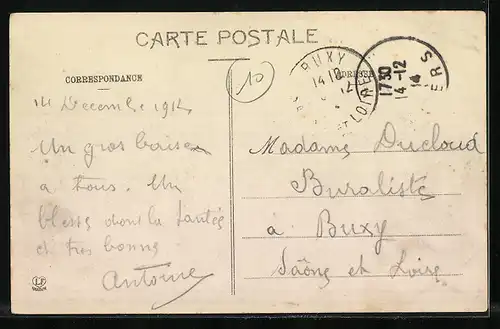 CARTE POSTALE
CORRESPONDANCE
ADRESSE
BUXY
14 12
ET LOIRE
1730
14-12
14
ERS
10
14 Decembre 1914
Un gros baiser
a tous. Un
blessé dont la santée
et tres bonne
Antoine
Madame Ducloud
Buraliste
à Buxy
Saône et Loire